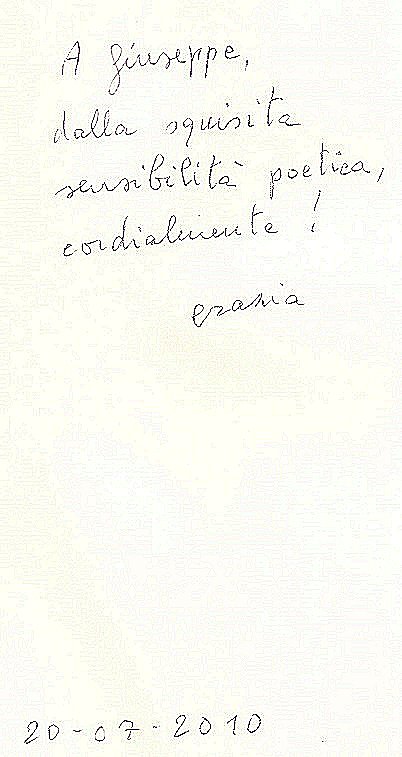 A Giuseppe,
dalla squisita
sensibilità poetica,
cordialmente!
20-07-2010